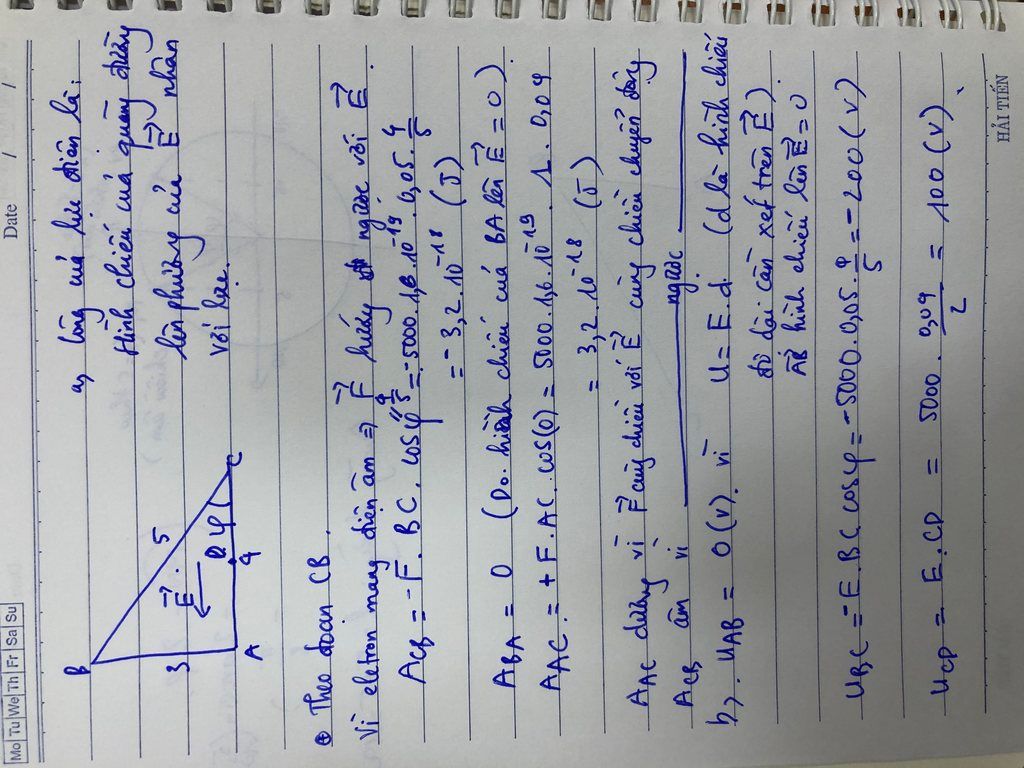 Mo Tu We Th Fr Sa Su
Date / /
B
5
3
E→.
D
φ
C
A
4
a, Công của lực điện là:
Hình chiếu của quãng đường
lên phương của E→ nhân
với lực.
⊕ Theo đoạn CB.
Vì eletron mang điện âm ⇒ F→ hướng ngược với E→.
A_CB = -F. BC. cosφ = -5000. 1,6. 10^-19. 0,05. 4/5
4/5
= - 3,2. 10^-18 (J)
A_BA = 0 (Do. hình chiếu của BA lên E→ = 0).
A_AC = + F. AC. cos(0) = 5000. 1,6. 10^-19. 1. 0,04
= 3,2. 10^-18 (J)
A_AC dương vì F→ cùng chiều với E→ cùng chiều chuyển động
A_CB âm vì ——— ngược ———
b,. U_AB = 0 (V). vì U = E.d. (d là hình chiếu
độ dài cần xét trên E→)
AB→ hình chiếu lên E→ = 0
U_BC = -E. BC cosφ = -5000. 0,05. 4/5 = -200 (V)
U_CD = E. CD = 5000. 0,04/2 = 100 (V).
HẢI TIẾN